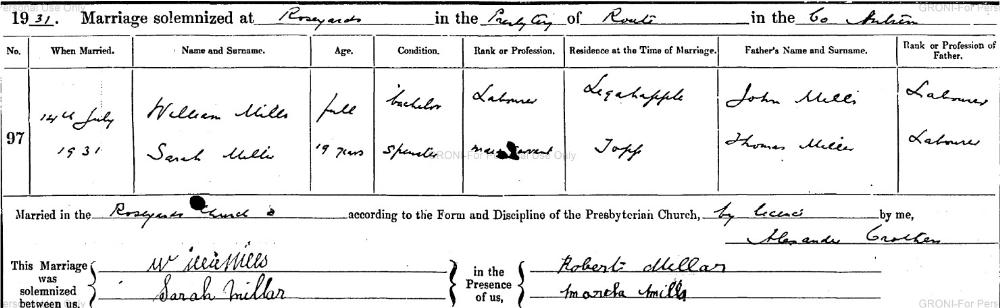 1931. Marriage solemnized at Roseyards in the Presbytery of Route in the Co Antrim
No. When Married. Name and Surname. Age. Condition. Rank or Profession. Residence at the Time of Marriage. Father's Name and Surname. Rank or Profession of Father.
97 14th July 1931 William Mills full bachelor Labourer Legahapple John Mills Labourer
Sarah Miller 19 years spinster servant Topp Thomas Miller Labourer
Married in the Roseyards Church according to the Form and Discipline of the Presbyterian Church, by licence by me,
Alexander Crothers
This Marriage was solemnized between us, Willie Mills in the Presence of us, Robert Millar
Sarah Millar Martha Mills
GRONI-For Personal Use Only